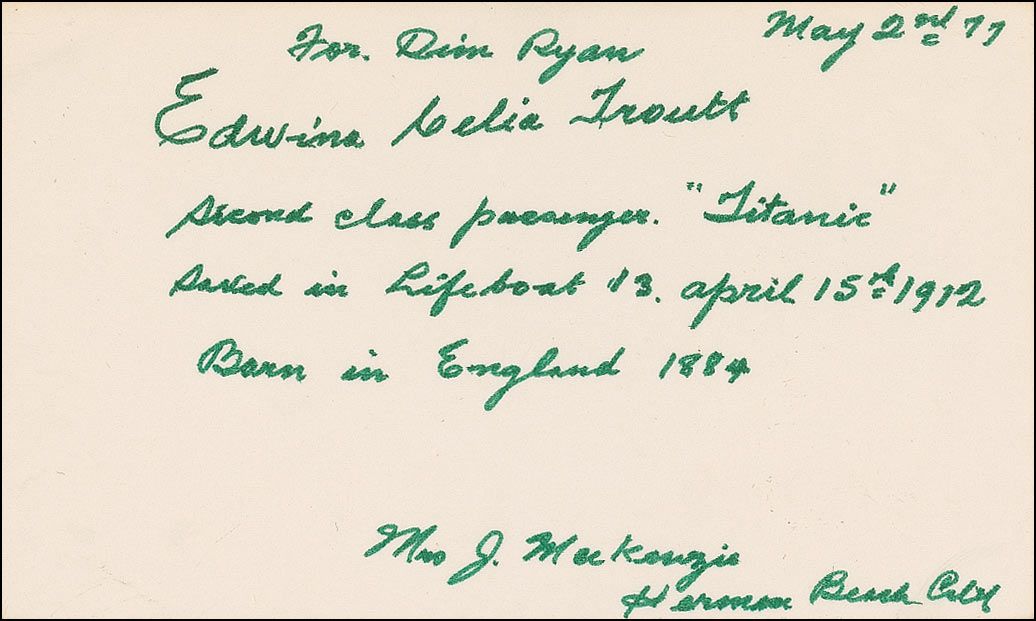 May 2nd 77
For. Dim Ryan
Edwina Celia Troutt
Second class passenger. "Titanic"
Saved in Lifeboat 13. april 15th 1912
Born in England 1884
Mrs J. MacKenzie
Hermosa Beach Calif